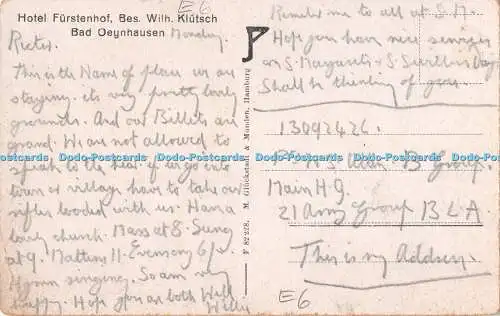 E6
Hotel Fürstenhof, Bes. Wilh. Klütsch
Bad Oeynhausen Monday
Rector.
This is the Name of place we are
staying. its very pretty lovely
grounds. And our Billets are
grand. We are not allowed to
speak to the If we go into
town or village have to take our
rifles loaded with us. Have a
lovely church. Mass at 8. Sung
at 9. Mattins 11. Evensong 6/
Hymn singing. So am very
happy. Hope you are both Well
Willie
M. Glückstadt & Münden, Hamburg
F 82 278.
P
Remember me to all at S. M.
Hope you have nice services
on S. Margarets & S. Day
Shall be thinking of you.
13092426.
Pte B Group.
Main H.Q.
21 Army Group B L A
This is my Address.
E6
Dodo-Postcards Dodo-Postcards Dodo-Postcards Dodo-Postcards Dodo-Postcards